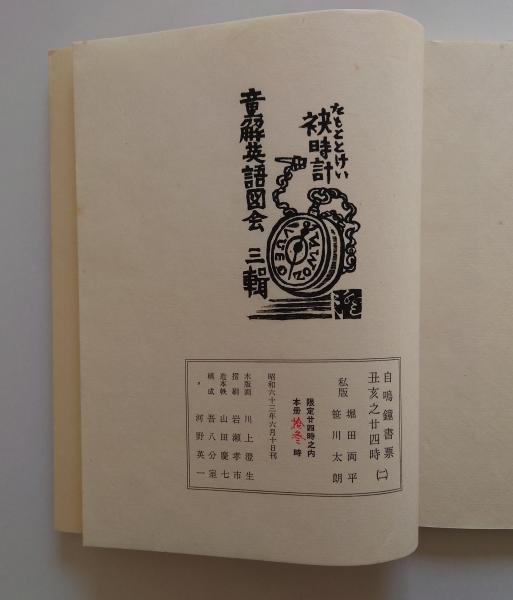 たもととけい
袂時計
童解英語図会 三輯
自鳴鐘書票(二)
丑亥之廿四時
堀田両平
私版 笹川太朗
限定廿四時之内
本册拾参時
昭和六十三年六月十日刊
木版画 川上澄生
摺刷 岩瀬孝市
造本帙 山田慶七
構成 吾八分室
〃 河野英一